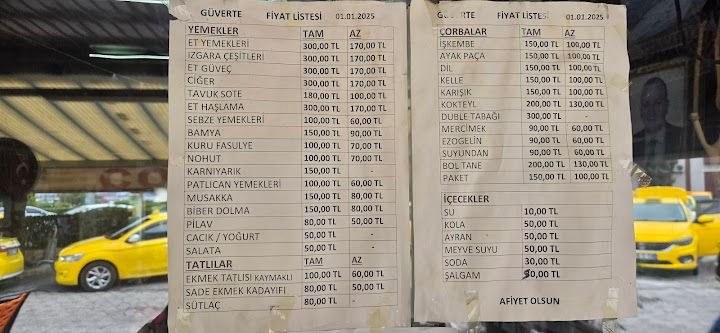 GÜVERTE FİYAT LİSTESİ 01.01.2025
YEMEKLER TAM AZ
ET YEMEKLERİ 300,00 TL 170,00 TL
IZGARA ÇEŞİTLERİ 300,00 TL 170,00 TL
ET GÜVEÇ 300,00 TL 170,00 TL
CİĞER 300,00 TL 170,00 TL
TAVUK SOTE 180,00 TL 100,00 TL
ET HAŞLAMA 300,00 TL 170,00 TL
SEBZE YEMEKLERİ 100,00 TL 60,00 TL
BAMYA 150,00 TL 90,00 TL
KURU FASULYE 100,00 TL 70,00 TL
NOHUT 100,00 TL 70,00 TL
KARNIYARIK 150,00 TL -
PATLICAN YEMEKLERİ 100,00 TL 60,00 TL
MUSAKKA 150,00 TL 80,00 TL
BİBER DOLMA 150,00 TL 80,00 TL
PİLAV 80,00 TL 50,00 TL
CACIK / YOĞURT 50,00 TL -
SALATA 50,00 TL -
TATLILAR TAM AZ
EKMEK TATLISI KAYMAKLI 100,00 TL 60,00 TL
SADE EKMEK KADAYIFI 80,00 TL 50,00 TL
SÜTLAÇ 80,00 TL -
GÜVERTE FİYAT LİSTESİ 01.01.2025
ÇORBALAR TAM AZ
İŞKEMBE 150,00 TL 100,00 TL
AYAK PAÇA 150,00 TL 100,00 TL
DİL 150,00 TL 100,00 TL
KELLE 150,00 TL 100,00 TL
KARIŞIK 150,00 TL 100,00 TL
KOKTEYL 200,00 TL 130,00 TL
DUBLE TABAĞI 300,00 TL -
MERCİMEK 90,00 TL 60,00 TL
EZOGELİN 90,00 TL 60,00 TL
SUYUNDAN 90,00 TL 60,00 TL
BOL TANE 200,00 TL 130,00 TL
PAKET 150,00 TL 100,00 TL
İÇECEKLER
SU 10,00 TL
KOLA 50,00 TL
AYRAN 50,00 TL
MEYVE SUYU 50,00 TL
SODA 30,00 TL
ŞALGAM TL
AFİYET OLSUN